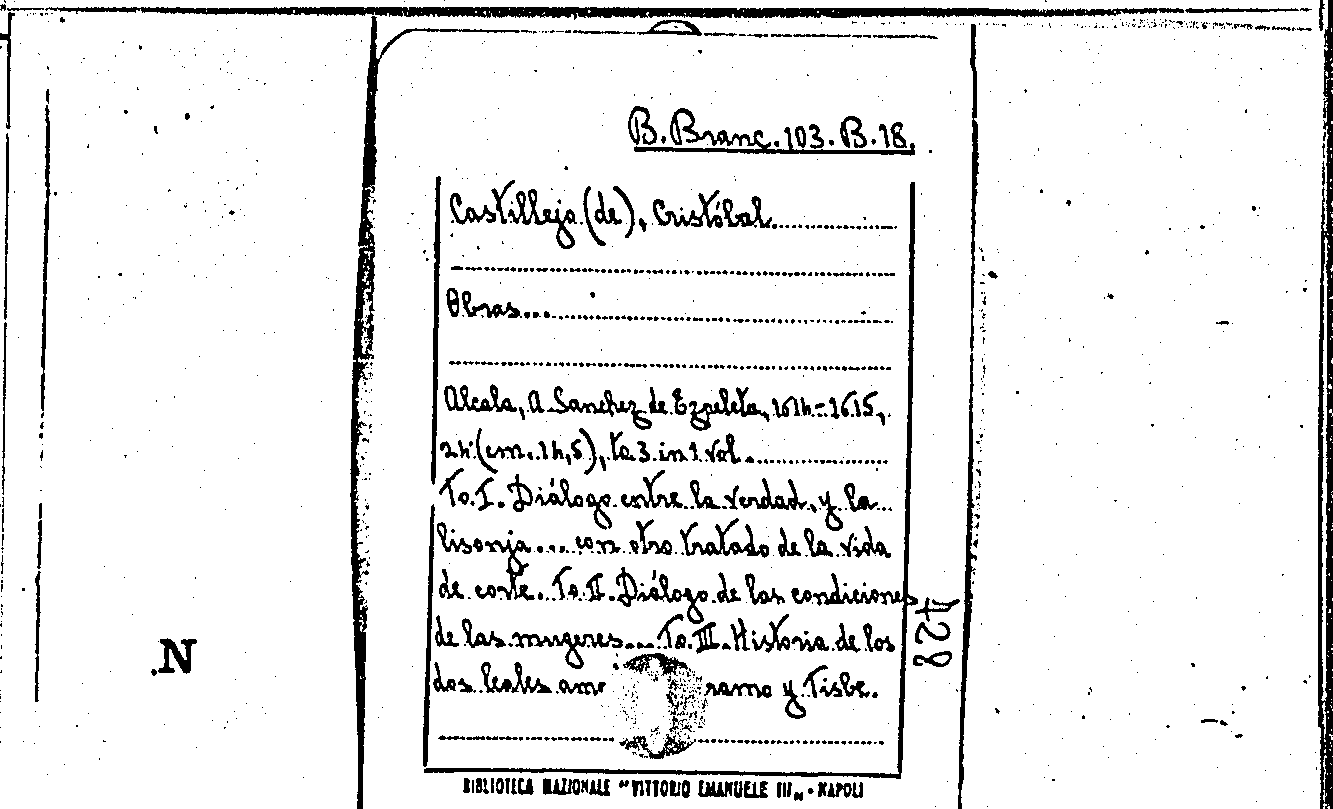 B. Branc. 103. B. 18.
Castillejo (de), Cristóbal
Obras...
Alcala, A. Sanchez de Ezpeleta, 1614-1615,
24º (cm. 14,5), to 3 in 1 vol.
To. I. Diálogo entre la verdad, y la
lisonja... con otro tratado de la vida
de corte. To. II. Diálogo de las condiciones
de las mugeres... To. III. Historia de los
dos leales ama ramo y Tisbe.
428
.N
BIBLIOTECA NAZIONALE "VITTORIO EMANUELE III" - NAPOLI